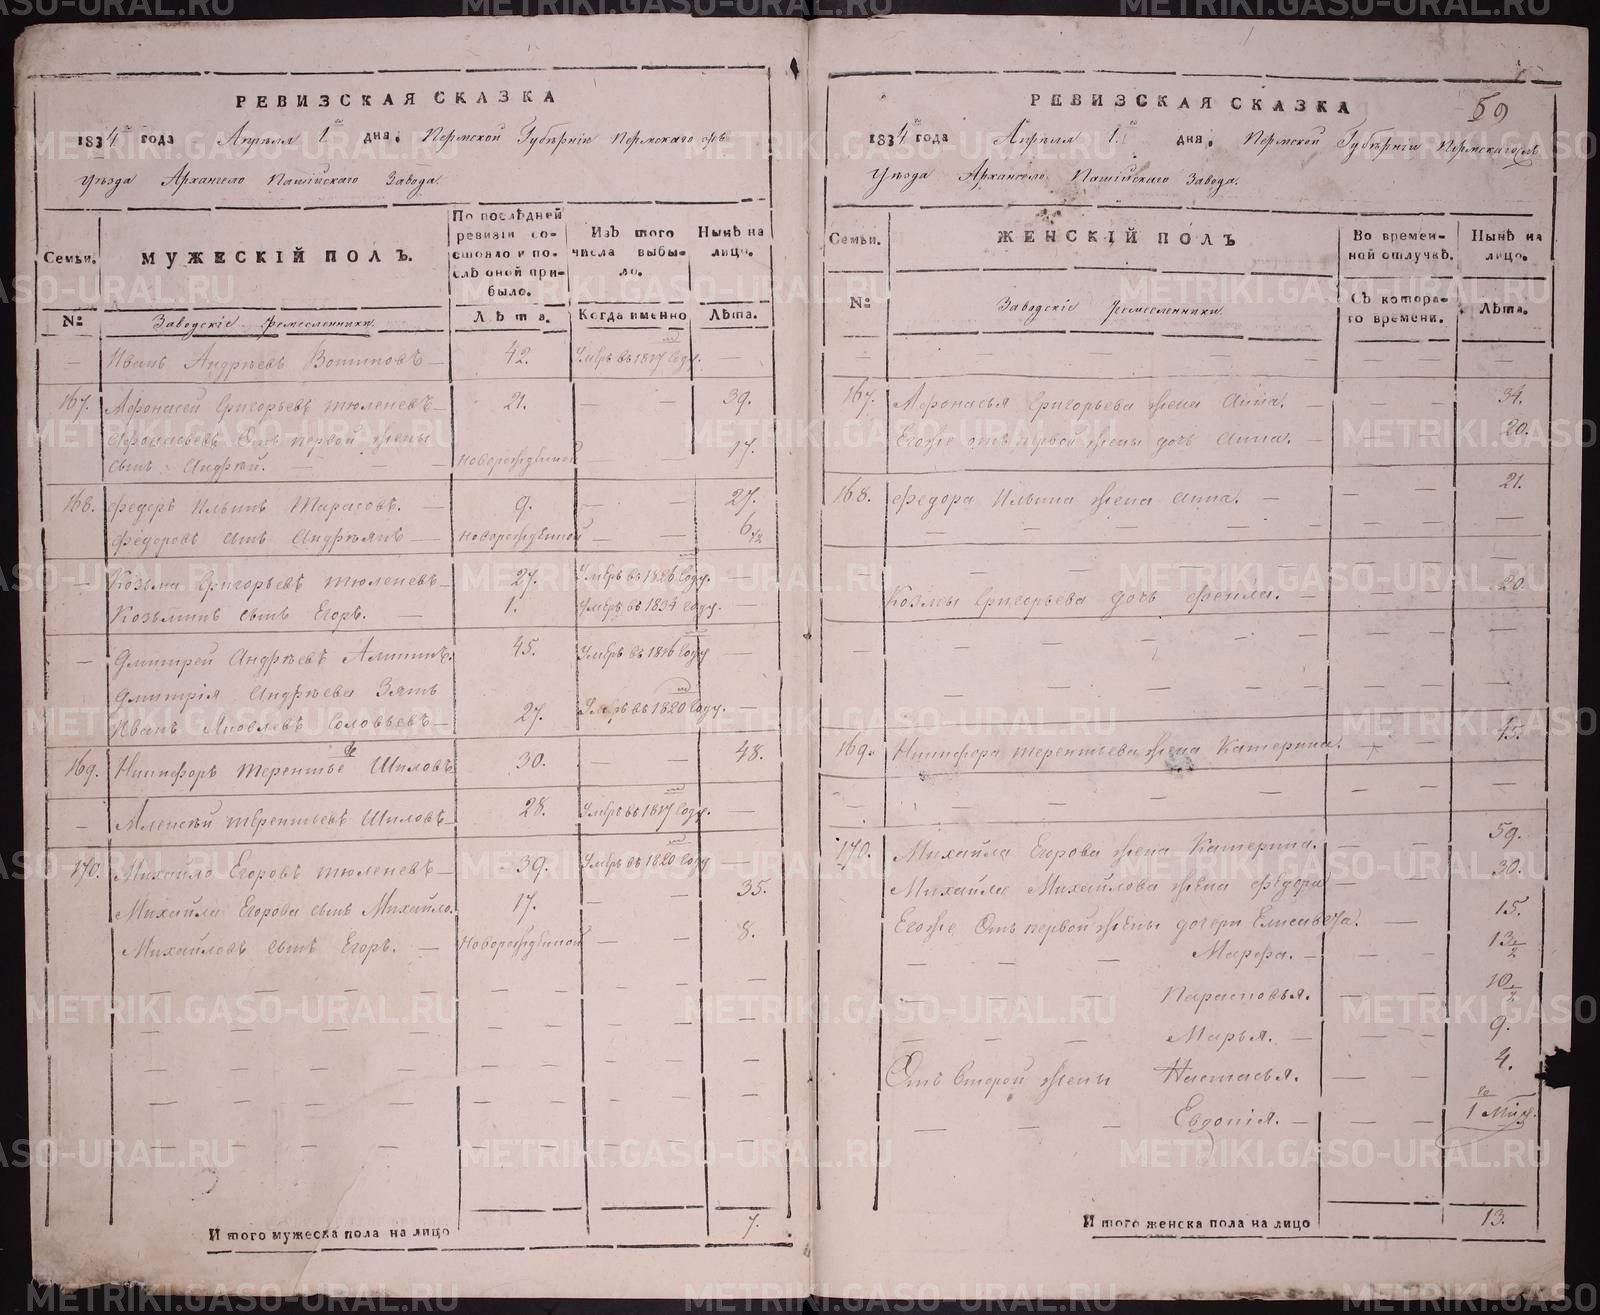 РЕВИЗСКАЯ СКАЗКА
1834 года Апреля 1 дня; Пермской Губѣрніи Пермскаго
Уѣзда Архангело Пашійскаго Завода.
Семьи.
МУЖЕСКІЙ ПОЛЪ.
По послѣдней ревизіи состояло и послѣ оной прибыло.
Изъ того числа выбыло.
Нынѣ на лицо.
№
Заводскіе ремесленники.
Лѣта.
Когда именно
Лѣта.
— Иванъ Андрѣевъ 42. Умѣръ въ 1817 году. —
167. Афонасей Григорьевъ Тюленевъ — 21. — — 39.
Афонасьевъ Отъ первой жены
сынъ Андрѣй. — — — Новорожденной — — 17.
168. Федоръ Ильинъ Тарасовъ. — 9. — 27.
Федоровъ сынъ Андреянъ — Новорожденной — — 6/12
— Козьма Григорьевъ Тюленевъ — 27. Умѣръ въ 1826 году. —
Козьминъ сынъ Егоръ. — 1. Умѣръ въ 1834 году. —
— Дмитрей Андрѣевъ 45. Умѣръ въ 1816 году —
Дмитрія Андрѣева Зять
Иванъ Яковлевъ Соловьевъ — 27. Умѣръ въ 1820 году. —
169. Никифоръ Терентьевъ Шиловъ 30. — — 48.
— Алексѣй Терентьевъ Шиловъ — 28. Умѣръ въ 1817 году. —
170. Михайло Егоровъ Тюленевъ — 39. Умѣръ въ 1820 году —
Михайла Егорова сынъ Михайло. 17. — — 35.
Михайловъ сынъ Егоръ. — Новорожденной — — 8.
Итого мужеска пола на лицо 7.
59
РЕВИЗСКАЯ СКАЗКА
1834 года Апреля 1 дня; Пермской Губѣрніи Пермскаго
Уѣзда Архангело Пашійскаго Завода.
Семьи.
ЖЕНСКІЙ ПОЛЪ
Во временной отлучкѣ.
Нынѣ на лицо.
№
Заводскіе ремесленники.
Съ котораго времени.
Лѣта.
167. Афонасья Григорьева жена Анна. — — — 34.
Егоже отъ первой жены дочь Анна. — — — 20.
168. Федора Ильина жена Анна. — — — 21.
Козмы Григорьева дочь Фекла. — — — 20.
169. Никифора Терентьева жена Катерина. — — 15.
170. Михайла Егорова жена Катерина. — — 59.
Михайла Михайлова жена Федора — — 30.
Егоже Отъ первой жены дочери Елисавета. — 15.
Марфа. — — — 13 1/2
Парасковья. — — 10 1/2
Марья. — — — 9.
Отъ второй жены Настасья. — — 4.
Евдокія. — — — 1
Итого женска пола на лицо 13.
METRIKI.GASO-URAL.RU